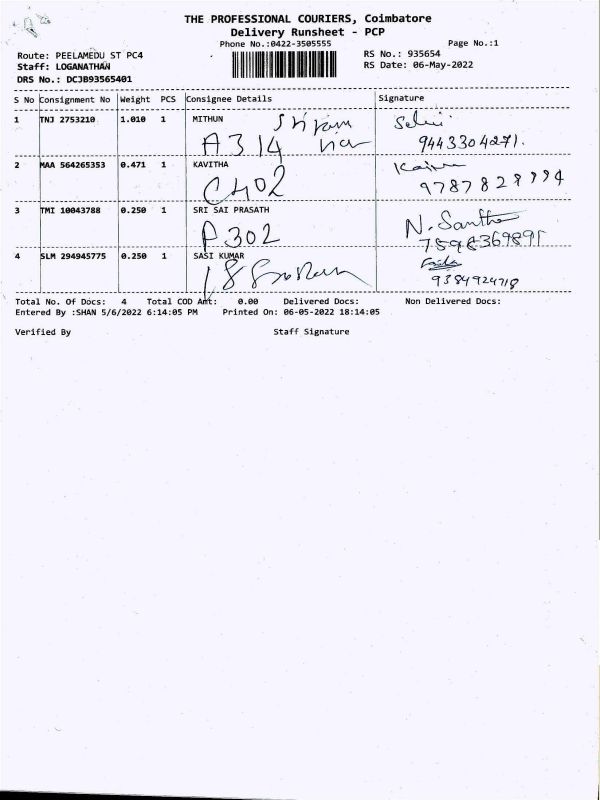 THE PROFESSIONAL COURIERS, Coimbatore
Delivery Runsheet - PCP
Phone No.:0422-3505555 Page No.:1
Route: PEELAMEDU ST PC4 RS No.: 935654
Staff: LOGANATHAN RS Date: 06-May-2022
DRS No.: DCJB93565401
S No Consignment No Weight PCS Consignee Details Signature
1 TNJ 2753210 1.010 1 MITHUN
A 314 9443304271.
2 MAA 564265353 0.471 1 KAVITHA
C402 9787828994
3 TMI 10043788 0.250 1 SRI SAI PRASATH N. Santho
P302 7598369891
4 SLM 294945775 0.250 1 SASI KUMAR
18 9384924718
Total No. Of Docs: 4 Total COD Amt: 0.00 Delivered Docs: Non Delivered Docs:
Entered By :SHAN 5/6/2022 6:14:05 PM Printed On: 06-05-2022 18:14:05
Verified By Staff Signature